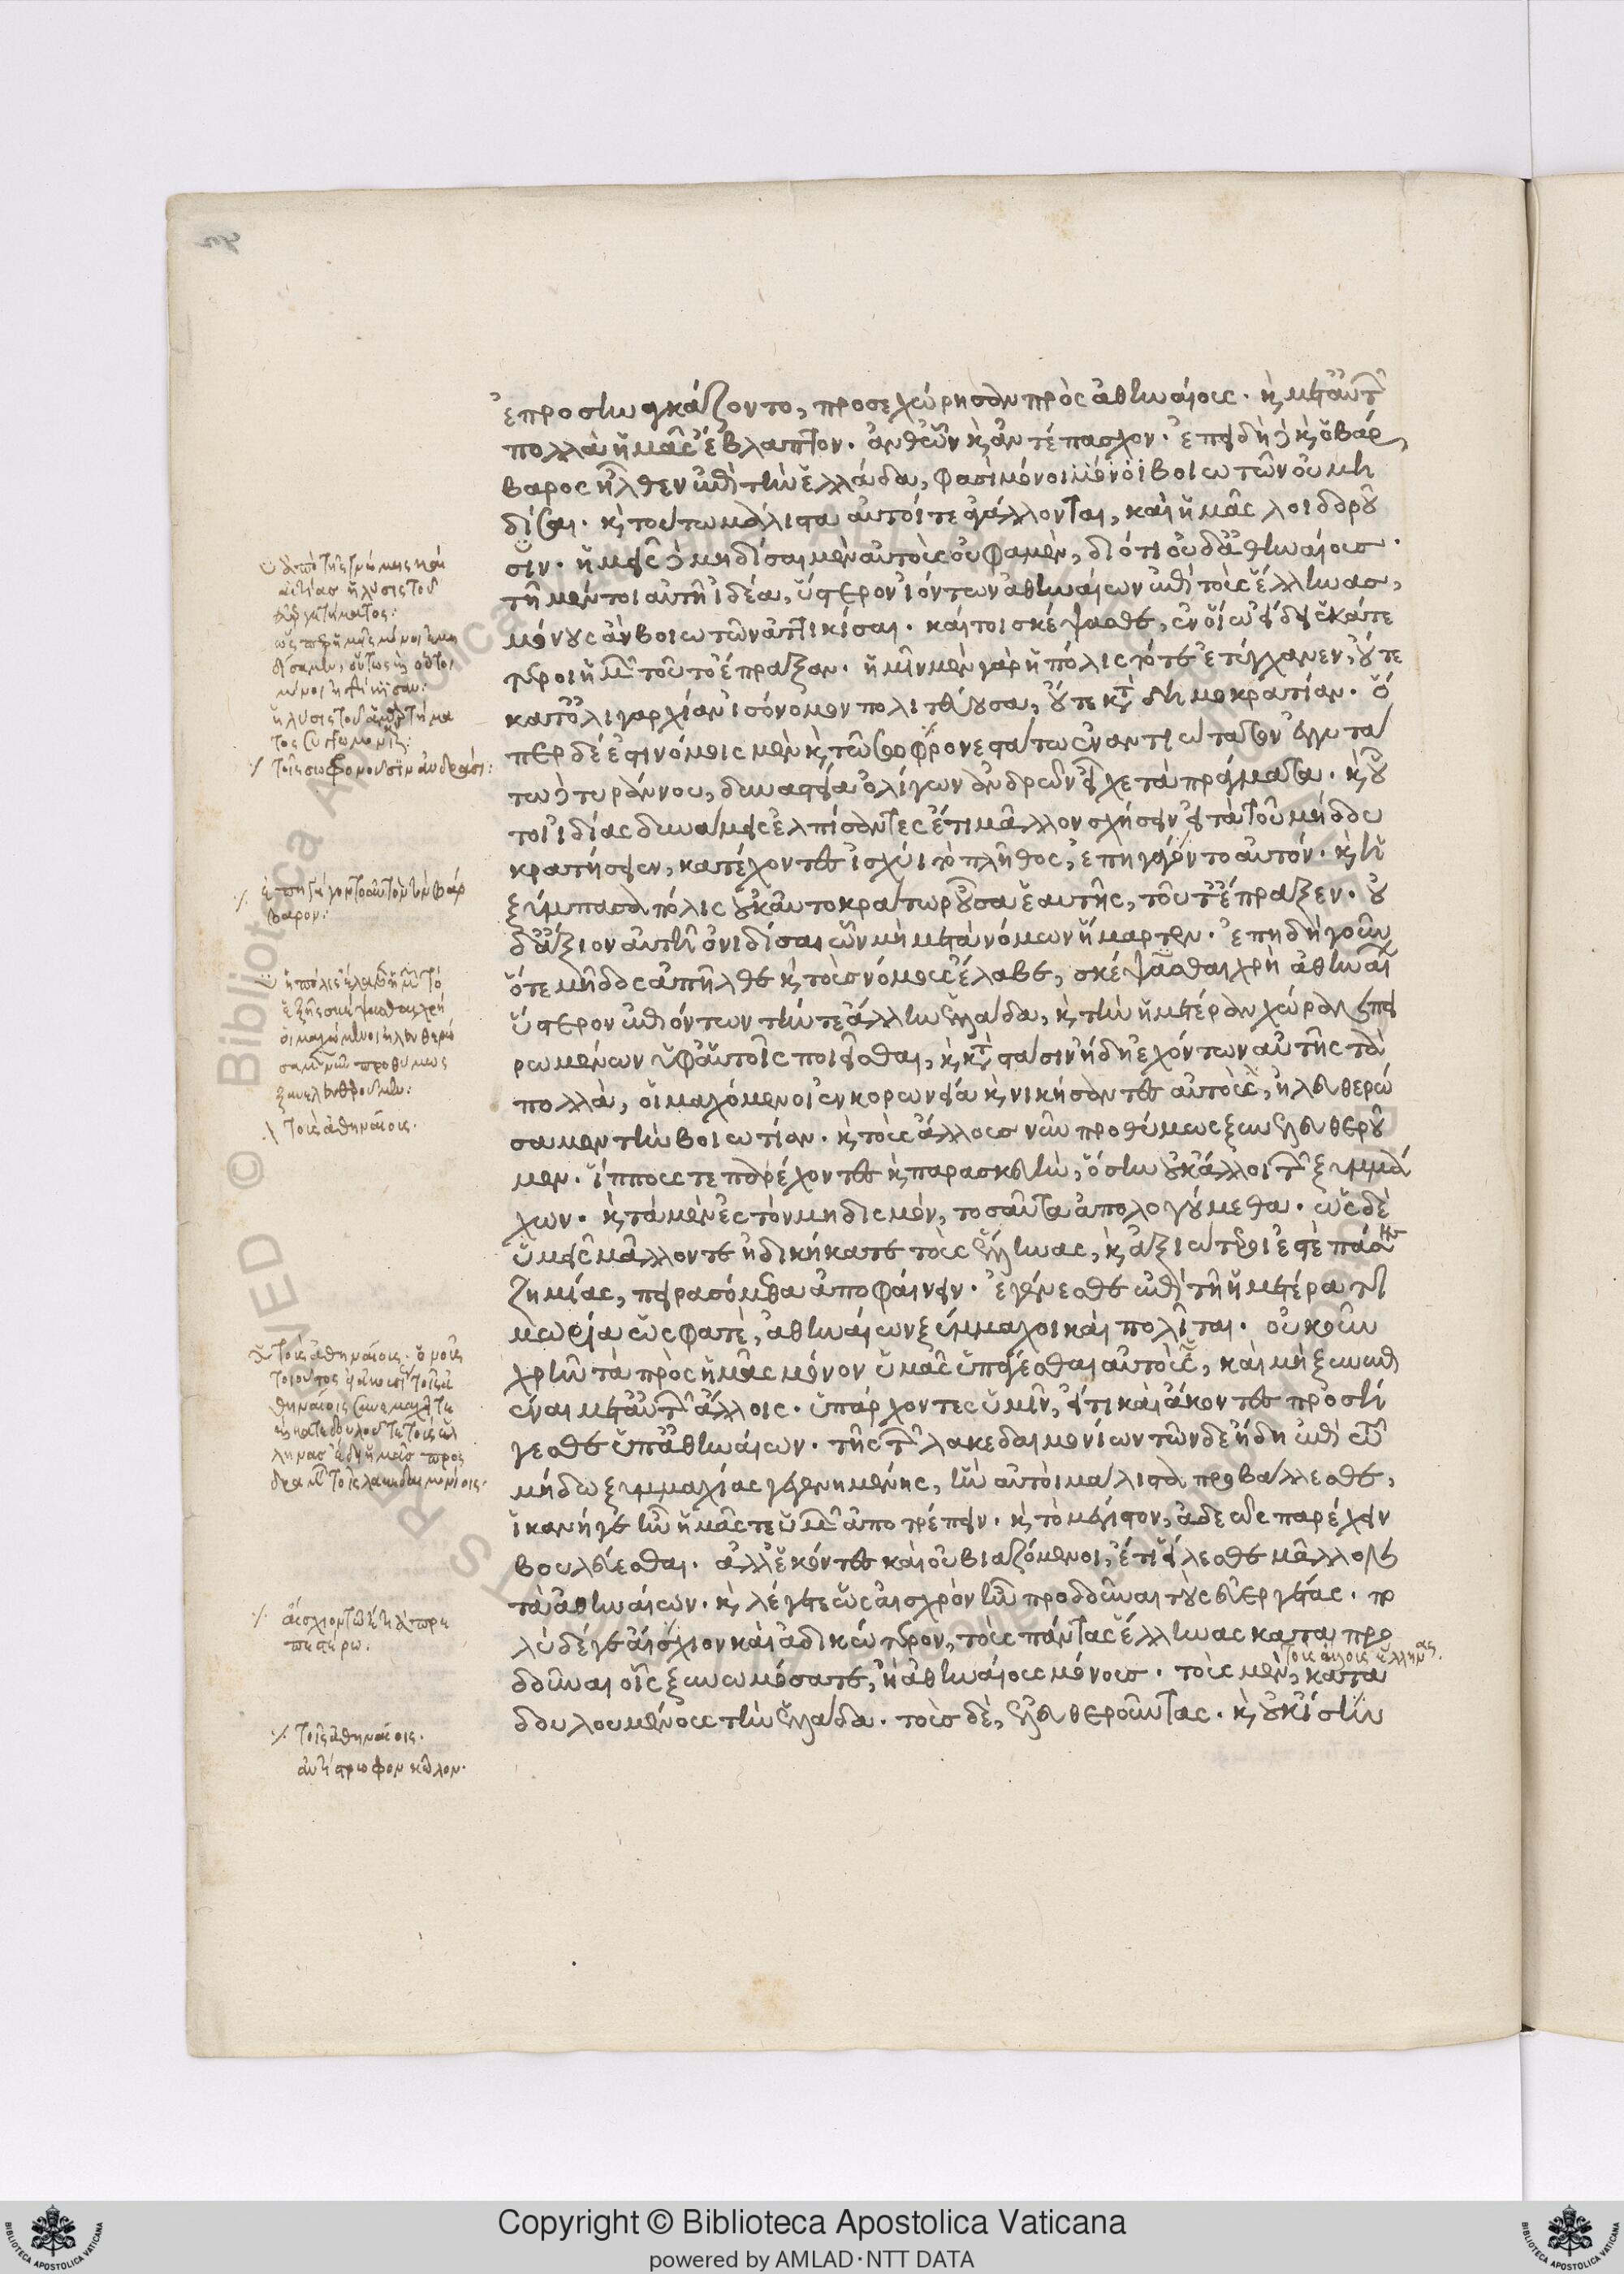 ἐπροσηναγκάζοντο, προσεχώρησαν πρὸς ἀθηναίους. καὶ μετ' αὐτῶν
πολλὰ ἡμᾶς ἔβλαπτον. ἀνθ' ὧν καὶ ἀντέπασχον. ἐπειδὴ δὲ καὶ ὁ βάρ
βαρος ἦλθεν ἐπὶ τὴν ἑλλάδα, φασὶ μόνοι μόνοι βοιωτῶν οὐ μη
δίσαι. καὶ τούτω μάλιστα αὐτοί τε ἀγάλλονται, καὶ ἡμᾶς λοιδοροῦ
σιν. ἡμεῖς δὲ μηδίσαι μὲν αὐτοὺς οὔ φαμεν, διότι οὐδ' ἀθηναίους.
τῆ μέντοι αὐτῆ ἰδέα, ὕστερον ἰόντων ἀθηναίων ἐπὶ τοὺς ἕλληνας,
μόνους ἂν βοιωτῶν ἀττικίσαι. καίτοι σκέψασθε, ἐν οἵω εἴδει ἑκάτε
ροι ἡμῶν τοῦτο ἔπραξαν. ἡμῖν μὲν γὰρ ἡ πόλις τότε ἐτύγχανεν, οὔτε
κατ' ὀλιγαρχίαν ἰσόνομον πολιτεύουσα, οὔτε κατὰ δημοκρατίαν. ὅ
περ δέ ἐστι νόμοις μὲν καὶ τῶ σωφρονεστάτω ἐναντιώτατον ἐγγυτά
τω δὲ τυράννου, δυναστεία ὀλίγων ἀνδρῶν εἶχε τὰ πράγματα. καὶ οὗ
τοι ἰδίας δυνάμεις ἐλπίσαντες ἔτι μᾶλλον σχήσειν εἰ τὰ τοῦ μήδου
κρατήσειεν, κατέχοντες ἰσχύι τὸ πλῆθος, ἐπηγάγοντο αὐτόν. καὶ ἡ
ξύμπασα πόλις οὐκ αὐτοκράτωρ οὖσα ἑαυτῆς, τοῦτ' ἔπραξεν. οὐ
δ' ἄξιον αὐτῆ ὀνειδίσαι ὧν μὴ μετὰ νόμων ἥμαρτεν. ἐπειδὴ γοῦν
ὅτε μῆδος ἀπῆλθε καὶ τοὺς νόμους ἔλαβε, σκέψασθαι χρὴ ἀθηναίων
ὕστερον ἐπιόντων τήν τε ἄλλην ἑλλάδα, καὶ τὴν ἡμετέραν χώραν πει
ρωμένων ὑφ' αὑτοῖς ποιεῖσθαι, καὶ κατὰ στάσιν ἤδη ἐχόντων αὐτῆς τὰ
πολλὰ, εἰ μαχόμενοι ἐν κορωνεία καὶ νικήσαντες αὐτοὺς, ἠλευθερώ
σαμεν τὴν βοιωτίαν. καὶ τοὺς ἄλλους νῦν προθύμως ξυνελευθεροῦ
μεν. ἵππους τε παρέχοντες καὶ παρασκευὴν, ὅσην οὐκ ἄλλοι τῶν ξυμμά
χων. καὶ τὰ μὲν ἐς τὸν μηδισμόν, τοσαῦτα ἀπολογούμεθα. ὡς δὲ
ὑμεῖς μᾶλλόν τε ἠδικήκατε τοὺς ἕλληνας, καὶ ἀξιώτεροί ἐστὲ πάσης
ζημίας, πειρασόμεθα ἀποφαίνειν. ἐγένεσθε ἐπὶ τῆ ἡμετέρα τι
μωρία ὡς φατὲ, ἀθηναίων ξύμμαχοι καὶ πολῖται. οὐκοῦν
χρῆν τὰ πρὸς ἡμᾶς μόνον ὑμᾶς ὑπάγεσθαι αὐτοὺς, καὶ μὴ ξυνεπι
έναι μετ' αὐτῶν ἄλλοις. ὑπάρχοντες ὑμῖν, εἴ τι καὶ ἄκοντες προσή
γεσθε ὑπ' ἀθηναίων. τῆς τῶν λακεδαιμονίων τῶνδε ἤδη ἐπὶ τῶ
μήδω ξυμμαχίας γεγενημένης, ἣν αὐτοὶ μάλιστα προβάλλεσθε,
ἱκανή γε ἦν ἡμᾶς τε ὑμῶν ἀποτρέπειν. καὶ τὸ μέγιστον, ἀδεῶς παρέχειν
βουλεύεσθαι. ἀλλ' ἑκόντες καὶ οὐ βιαζόμενοι, ἔτι εἵλεσθε μᾶλλον
τὰ ἀθηναίων. καὶ λέγετε ὡς αἰσχρὸν ἦν προδοῦναι τοὺς εὐεργέτας. πο
λὺ δέ γε αἴσχιον καὶ ἀδικώτερον, τοὺς πάντας ἕλληνας καταπρο
δοῦναι οἷς ξυνωμόσατε, ἢ ἀθηναίους μόνους. τοὺς μὲν, κατα
δουλουμένους τὴν ἑλλάδα. τοὺς δὲ, ἐλευθεροῦντας. καὶ οὐκ ἴσην
τοῖς ἄλλοις ἕλλησι.
ἀπὸ τῆς γνώμης καὶ
αἰτίας ἡ λύσις τοῦ
τοῖς σωφρονοῦσιν ἀνδράσι:
ἐπηγάγοντο αὐτὸν τὸν βάρ
βαρον:
τοῖς ἀθηναίοις.
τοῖς ἀθηναίοις.
ἀντίστροφον κῶλον.
Copyright © Biblioteca Apostolica Vaticana
powered by AMLAD·NTT DATA